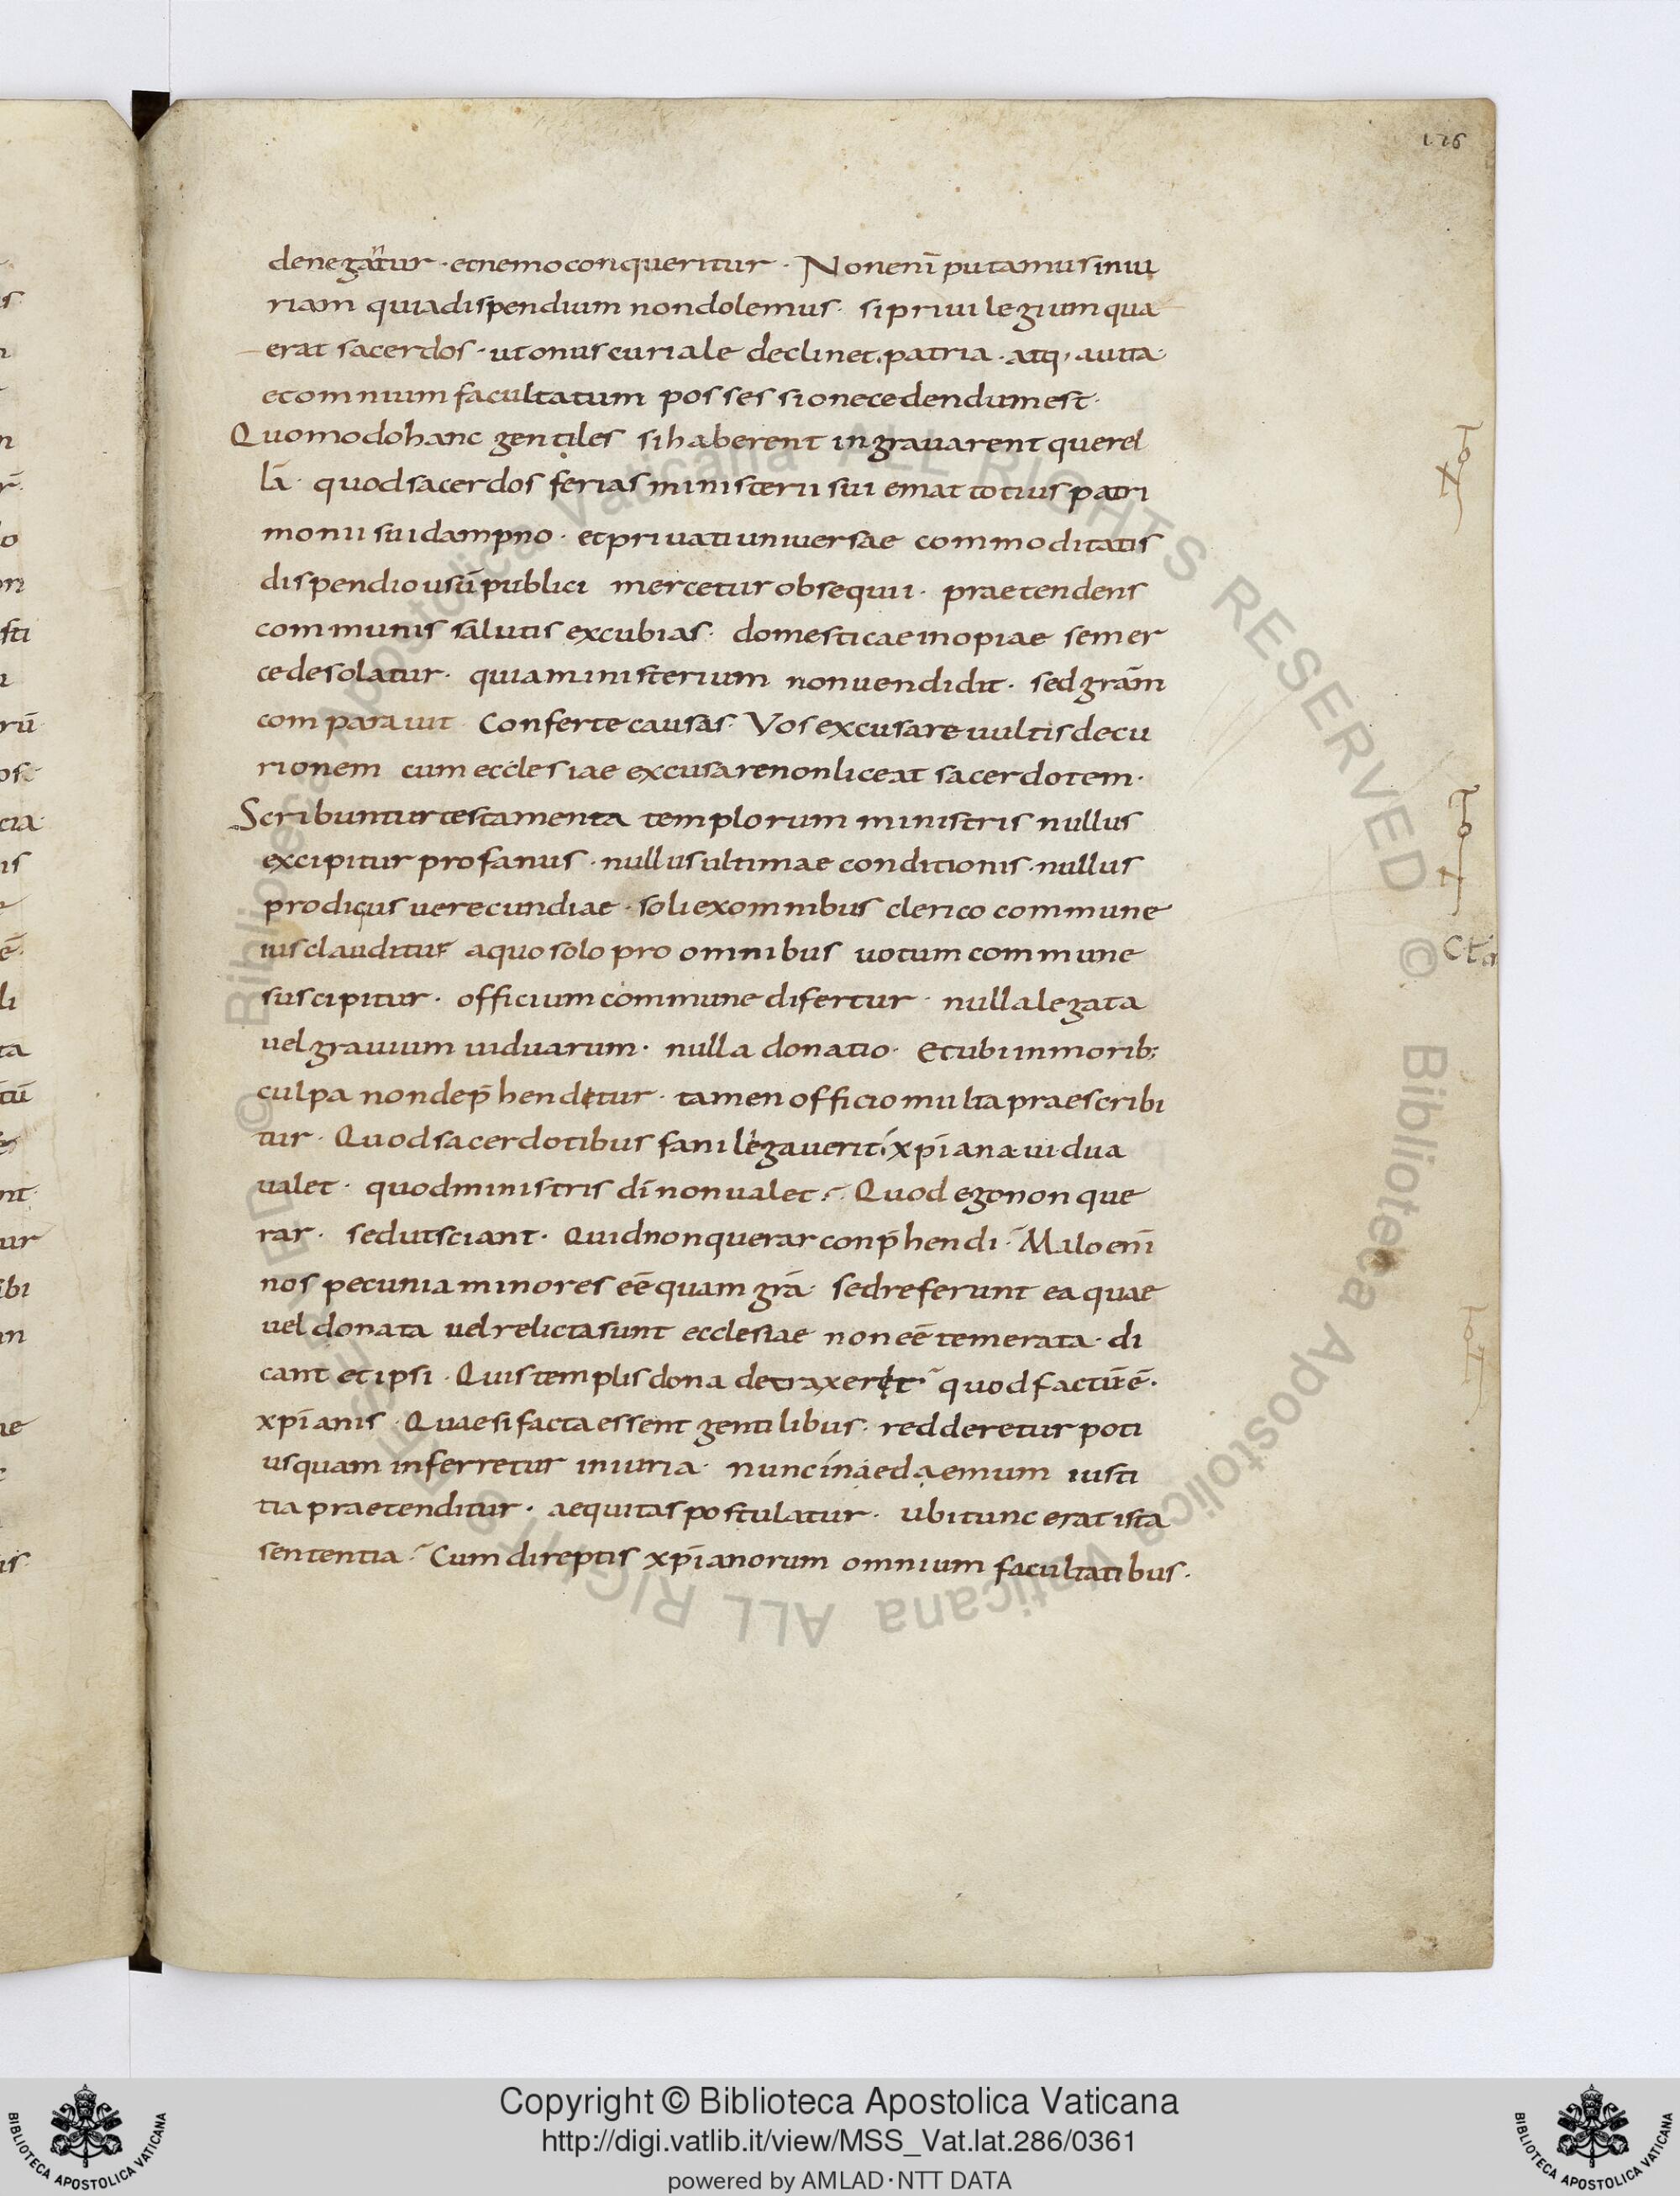 176
denegantur · et nemo conqueritur · Non enī putamus iniu
riam quia dispendium non dolemus · si priuilegium qua
erat sacerdos · ut onus curiale declinet · patria · atq; auita ·
et omnium facultatum possessione cedendum est ·
Quomodo hanc gentiles si haberent ingrauarent querel
lā · quod sacerdos ferias ministerii sui emat totius patri
monii sui dampno · et priuati uniuersae commoditatis
dispendio usū publici mercetur obsequii · praetendens
communis salutis excubias · domesticae inopiae se mer
cede solatur · quia ministerium non uendidit · sed grām
comparauit · Conferte causas · Vos excusare uultis decu
rionem cum ecclesiae excusare non liceat sacerdotem ·
Scribuntur testamenta templorum ministris nullus
excipitur profanus · nullus ultimae conditionis · nullus
prodigus uerecundiae · soli ex omnibus clerico commune
ius clauditur a quo solo pro omnibus uotum commune
suscipitur · officium commune difertur · nulla legata
uel grauium uiduarum · nulla donatio · Et ubi in morib;
culpa non dep̄henditur · tamen officio multa praescribi
tur · Quod sacerdotibus fani legauerit · xp̄iana uidua
ualet · quod ministris dī non ualet · Quod ego non que
rar · sed ut sciant · Quid non querar conp̄hendi · Malo enī
nos pecunia minores eē quam grā · sed referunt ea quae
uel donata uel relicta sunt ecclesiae non eē temerata · di
cant et ipsi · Quis templis dona detraxerit quod factū ē ·
xp̄ianis · Quae si facta essent gentilibus · redderetur poti
us quam inferretur iniuria · nunc in aedaemum iusti
tia praetenditur · aequitas postulatur · ubi tunc erat ista
sententia · Cum direptis xp̄ianorum omnium facultatibus ·
Copyright © Biblioteca Apostolica Vaticana
http://digi.vatlib.it/view/MSS_Vat.lat.286/0361
powered by AMLAD · NTT DATA
BIBLIOTECA APOSTOLICA VATICANA
BIBLIOTECA APOSTOLICA VATICANA
© Biblioteca Apostolica Vaticana ALL RIGHTS RESERVED
© Biblioteca Apostolica Vaticana ALL RIGHTS RESERVED